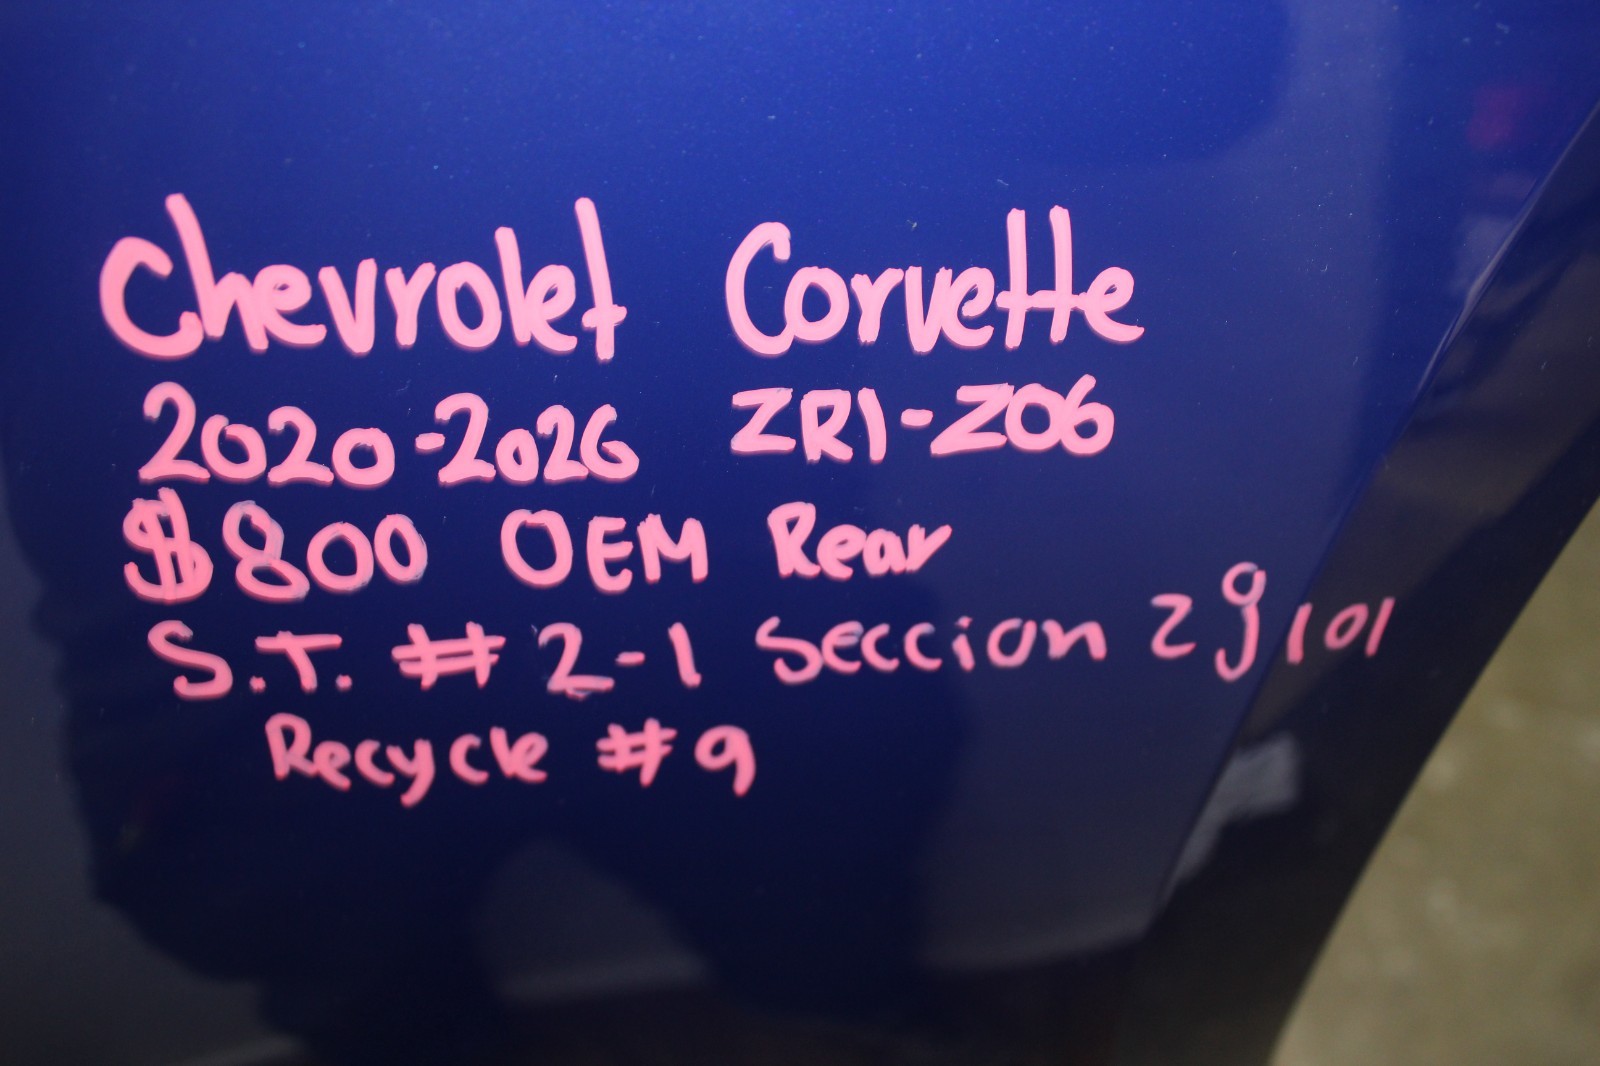 Chevrolet Corvette
2020-2026 ZR1-Z06
$800 OEM Rear
S.T. #2-1 Seccion 29101
Recycle #9